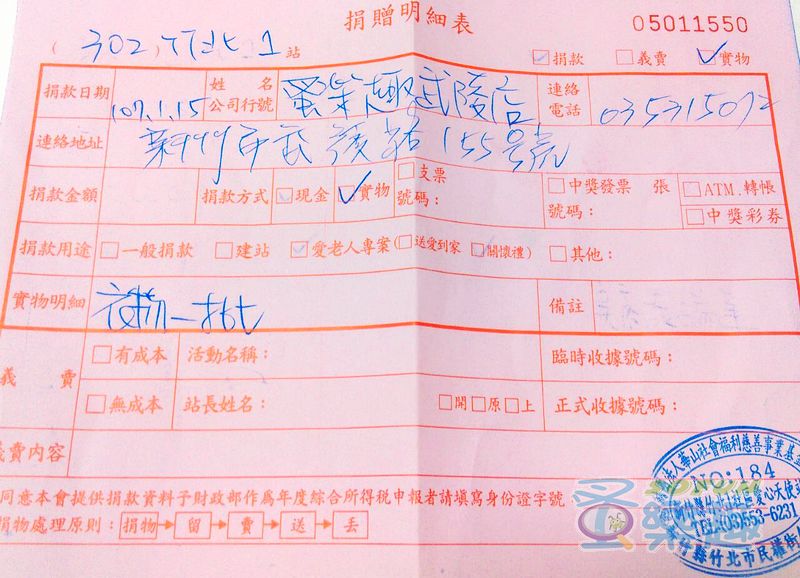 捐贈明細表
05011550
(302)竹北1站
☐捐款 ☐義賣 ☑實物
捐款日期 107.1.15 姓名 公司行號 武陵店 連絡電話 035315072
連絡地址 155號
捐款金額 捐款方式 ☐現金 ☑實物 ☐支票 號碼: ☐中獎發票 張 號碼: ☐ATM.轉帳 ☐中獎彩券
捐款用途 ☐一般捐款 ☐建站 ☐愛老人專案(☐送愛到家 ☐關懷禮) ☐其他:
實物明細 衣物一批 備註
義賣 ☐有成本 活動名稱: 臨時收據號碼:
☐無成本 站長姓名: ☐開☐原☐上 正式收據號碼:
義賣內容
同意本會提供捐款資料予財政部作為年度綜合所得稅申報者請填寫身份證字號:
捐物處理原則:捐物→留→賣→送→丟
法人華山社會福利慈善事業基
NO:184
愛心天使站
TEL:(03)553-6231
竹縣竹北市民權街